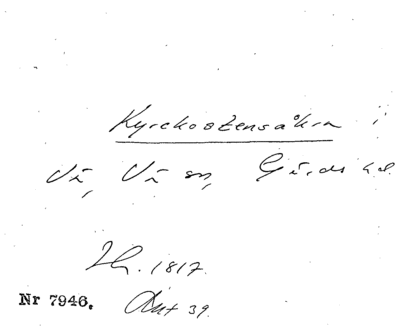 Kyrekostensåkra i
Vä, Vä sn, Gärds hd.
Lh. 1817.
Nr 7946. Akt 39.